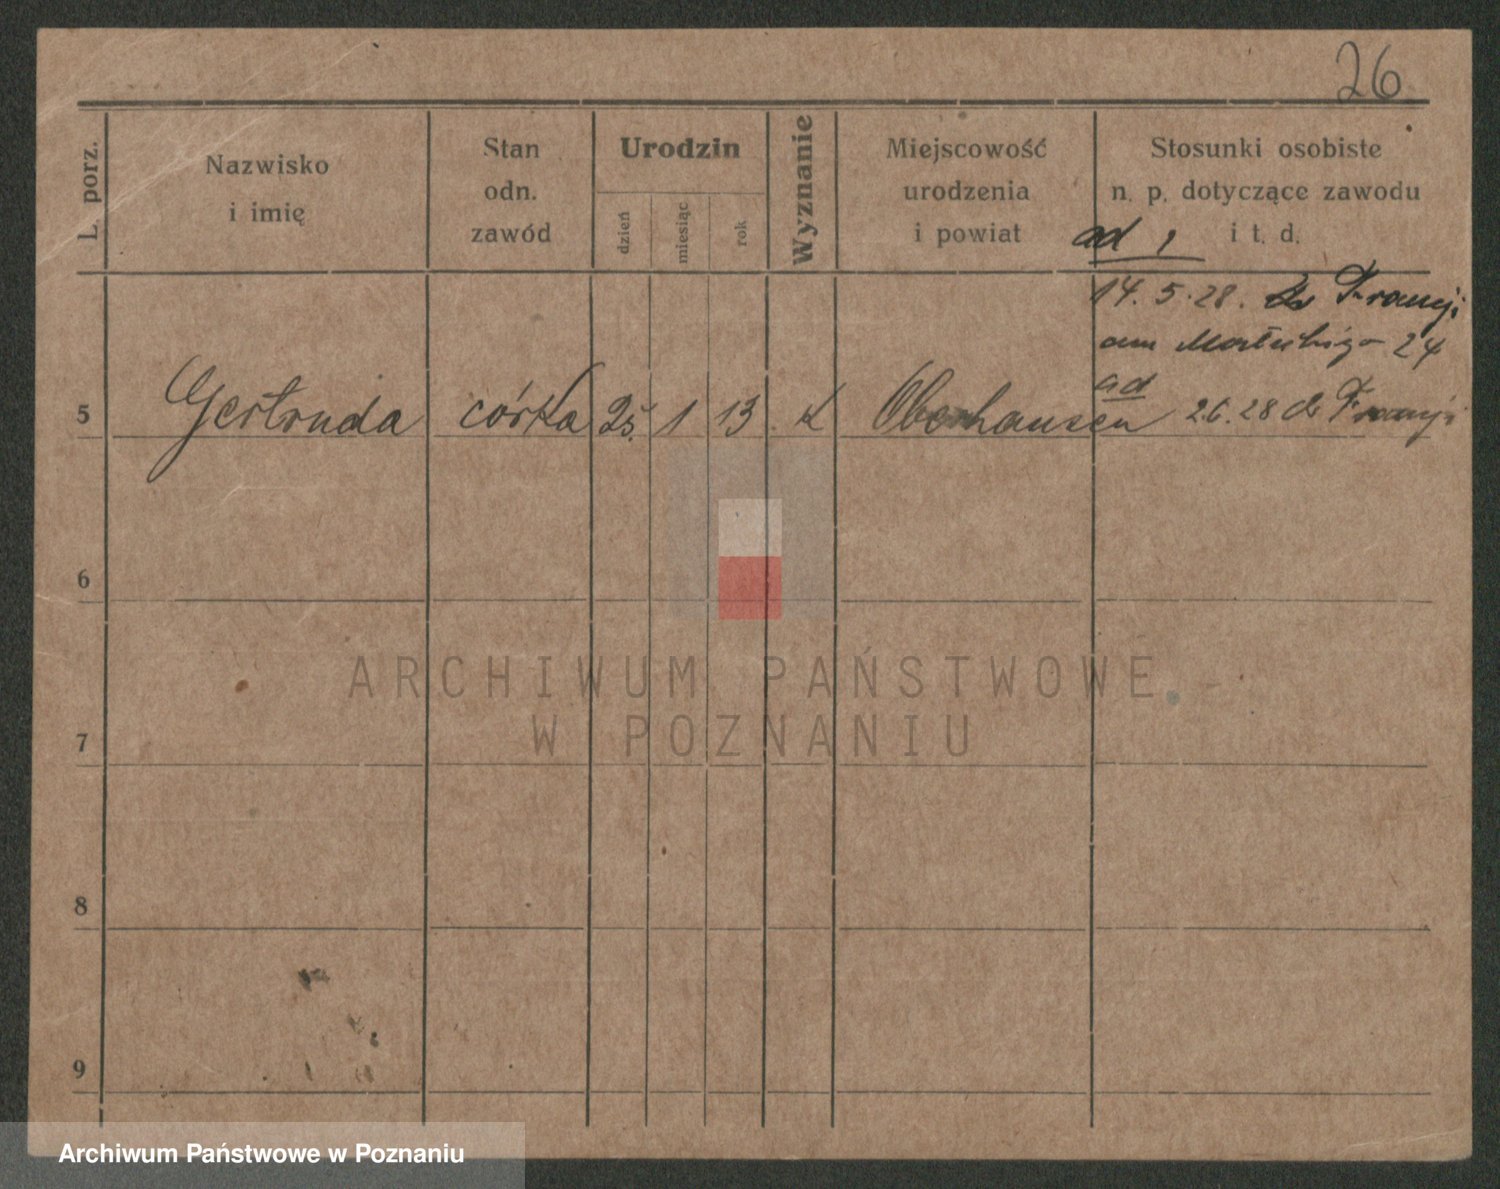 26
L. porz.
Nazwisko
i imię
Stan
odn.
zawód
Urodzin
dzień
miesiąc
rok
Wyznanie
Miejscowość
urodzenia
i powiat
Stosunki osobiste
n. p. dotyczące zawodu
i t. d.
ad 1
14. 5. 28. do Francji
24
ad
5 Gertruda córka 25. 1 13 k Oberhausen 2.6.28 do Francji
6
ARCHIWUM PAŃSTWOWE
W POZNANIU
7
8
9
Archiwum Państwowe w Poznaniu